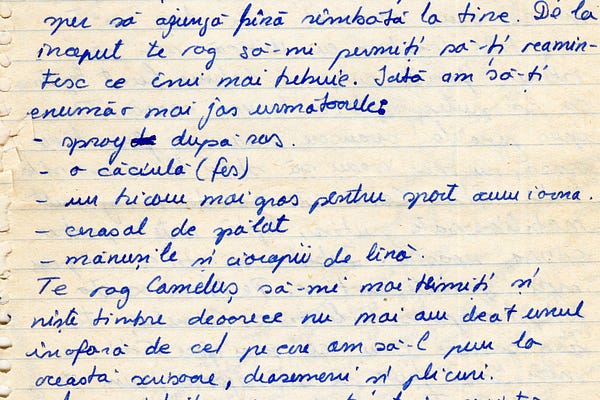 sper să ajungă pînă sîmbătă la tine. De la
început te rog să-mi permiți să-ți reamin-
tesc ce îmi mai trebuie. Iată am să-ți
enumăr mai jos următoarele:
- spray după ras.
- o căciulă (fes)
- un tricou mai gros pentru sport acum iarna.
- cerasol de pălat
- mănușile și ciorapii de lînă.
Te rog Cameluș să-mi mai trimiți și
niște timbre deoarece nu mai am decît unul
înafară de cel pe care am să-l pun la
această scrisoare, deasemeni și plicuri.